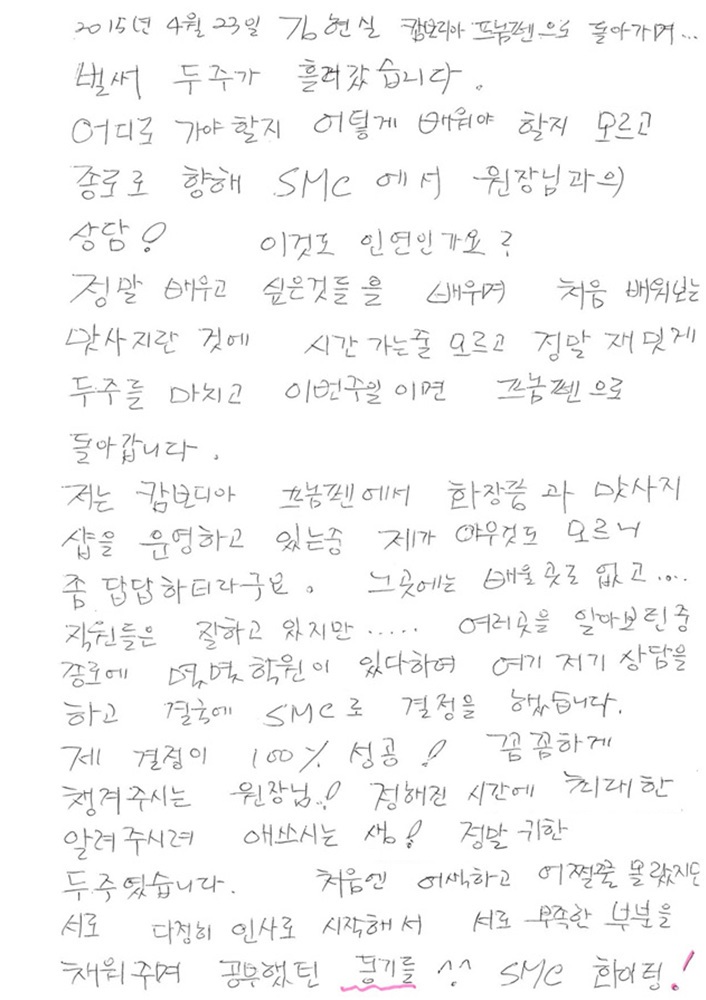 2015년 4월 23일 김현실 캄보리아 프놈펜으로 돌아가며...
벌써 두주가 흘러갔습니다.
어디로 가야할지 어떻게 배워야 할지 모르고
종로로 향해 SMC에서 원장님과의
상담! 이것도 인연인가요?
정말 배우고 싶은것들을 배우며 처음 배워보는
맛사지란 것에 시간 가는줄 모르고 정말 재밋게
두주를 마치고 이번주일이면 프놈펜으로
돌아갑니다.
저는 캄보디아 프놈펜에서 화장품과 맛사지
샵을 운영하고 있는중 제가 아무것도 모르니
좀 답답하더라구요. 그곳에는 배울곳도 없고....
직원들은 잘하고 있지만..... 여러곳을 알아보던중
종로에 몇몇학원이 있다하여 여기 저기 상담을
하고 결국에 SMC로 결정을 했습니다.
제 결정이 100% 성공! 꼼꼼하게
챙겨주시는 원장님! 정해진 시간에 최대한
알려주시려 애쓰시는 샘! 정말 귀한
두주였습니다. 처음엔 어색하고 어쩔줄 몰랐지만
서로 다정히 인사로 시작해서 서로 부족한 부분을
채워주며 공부했던 동기들 ^^ SMC 화이팅!